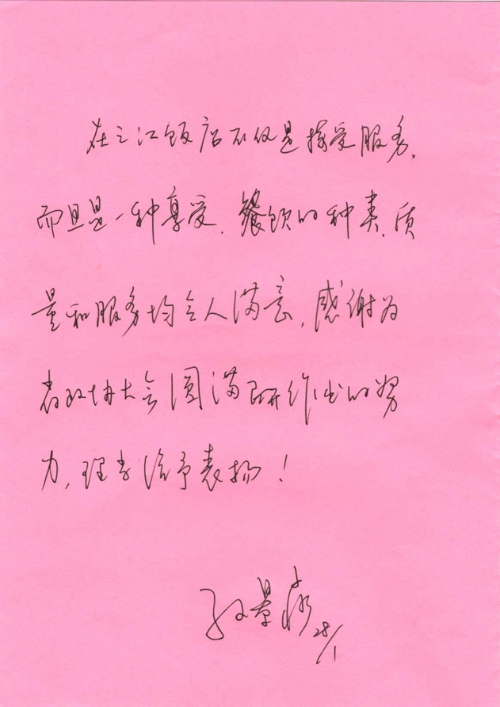 在之江饭店不仅是接受服务,
而且是一种享受.餐饮的种类,质
量和服务均令人满意,感谢为
省政协大会圆满所作出的努
力,理当给予表扬!
孙景淼
28/1